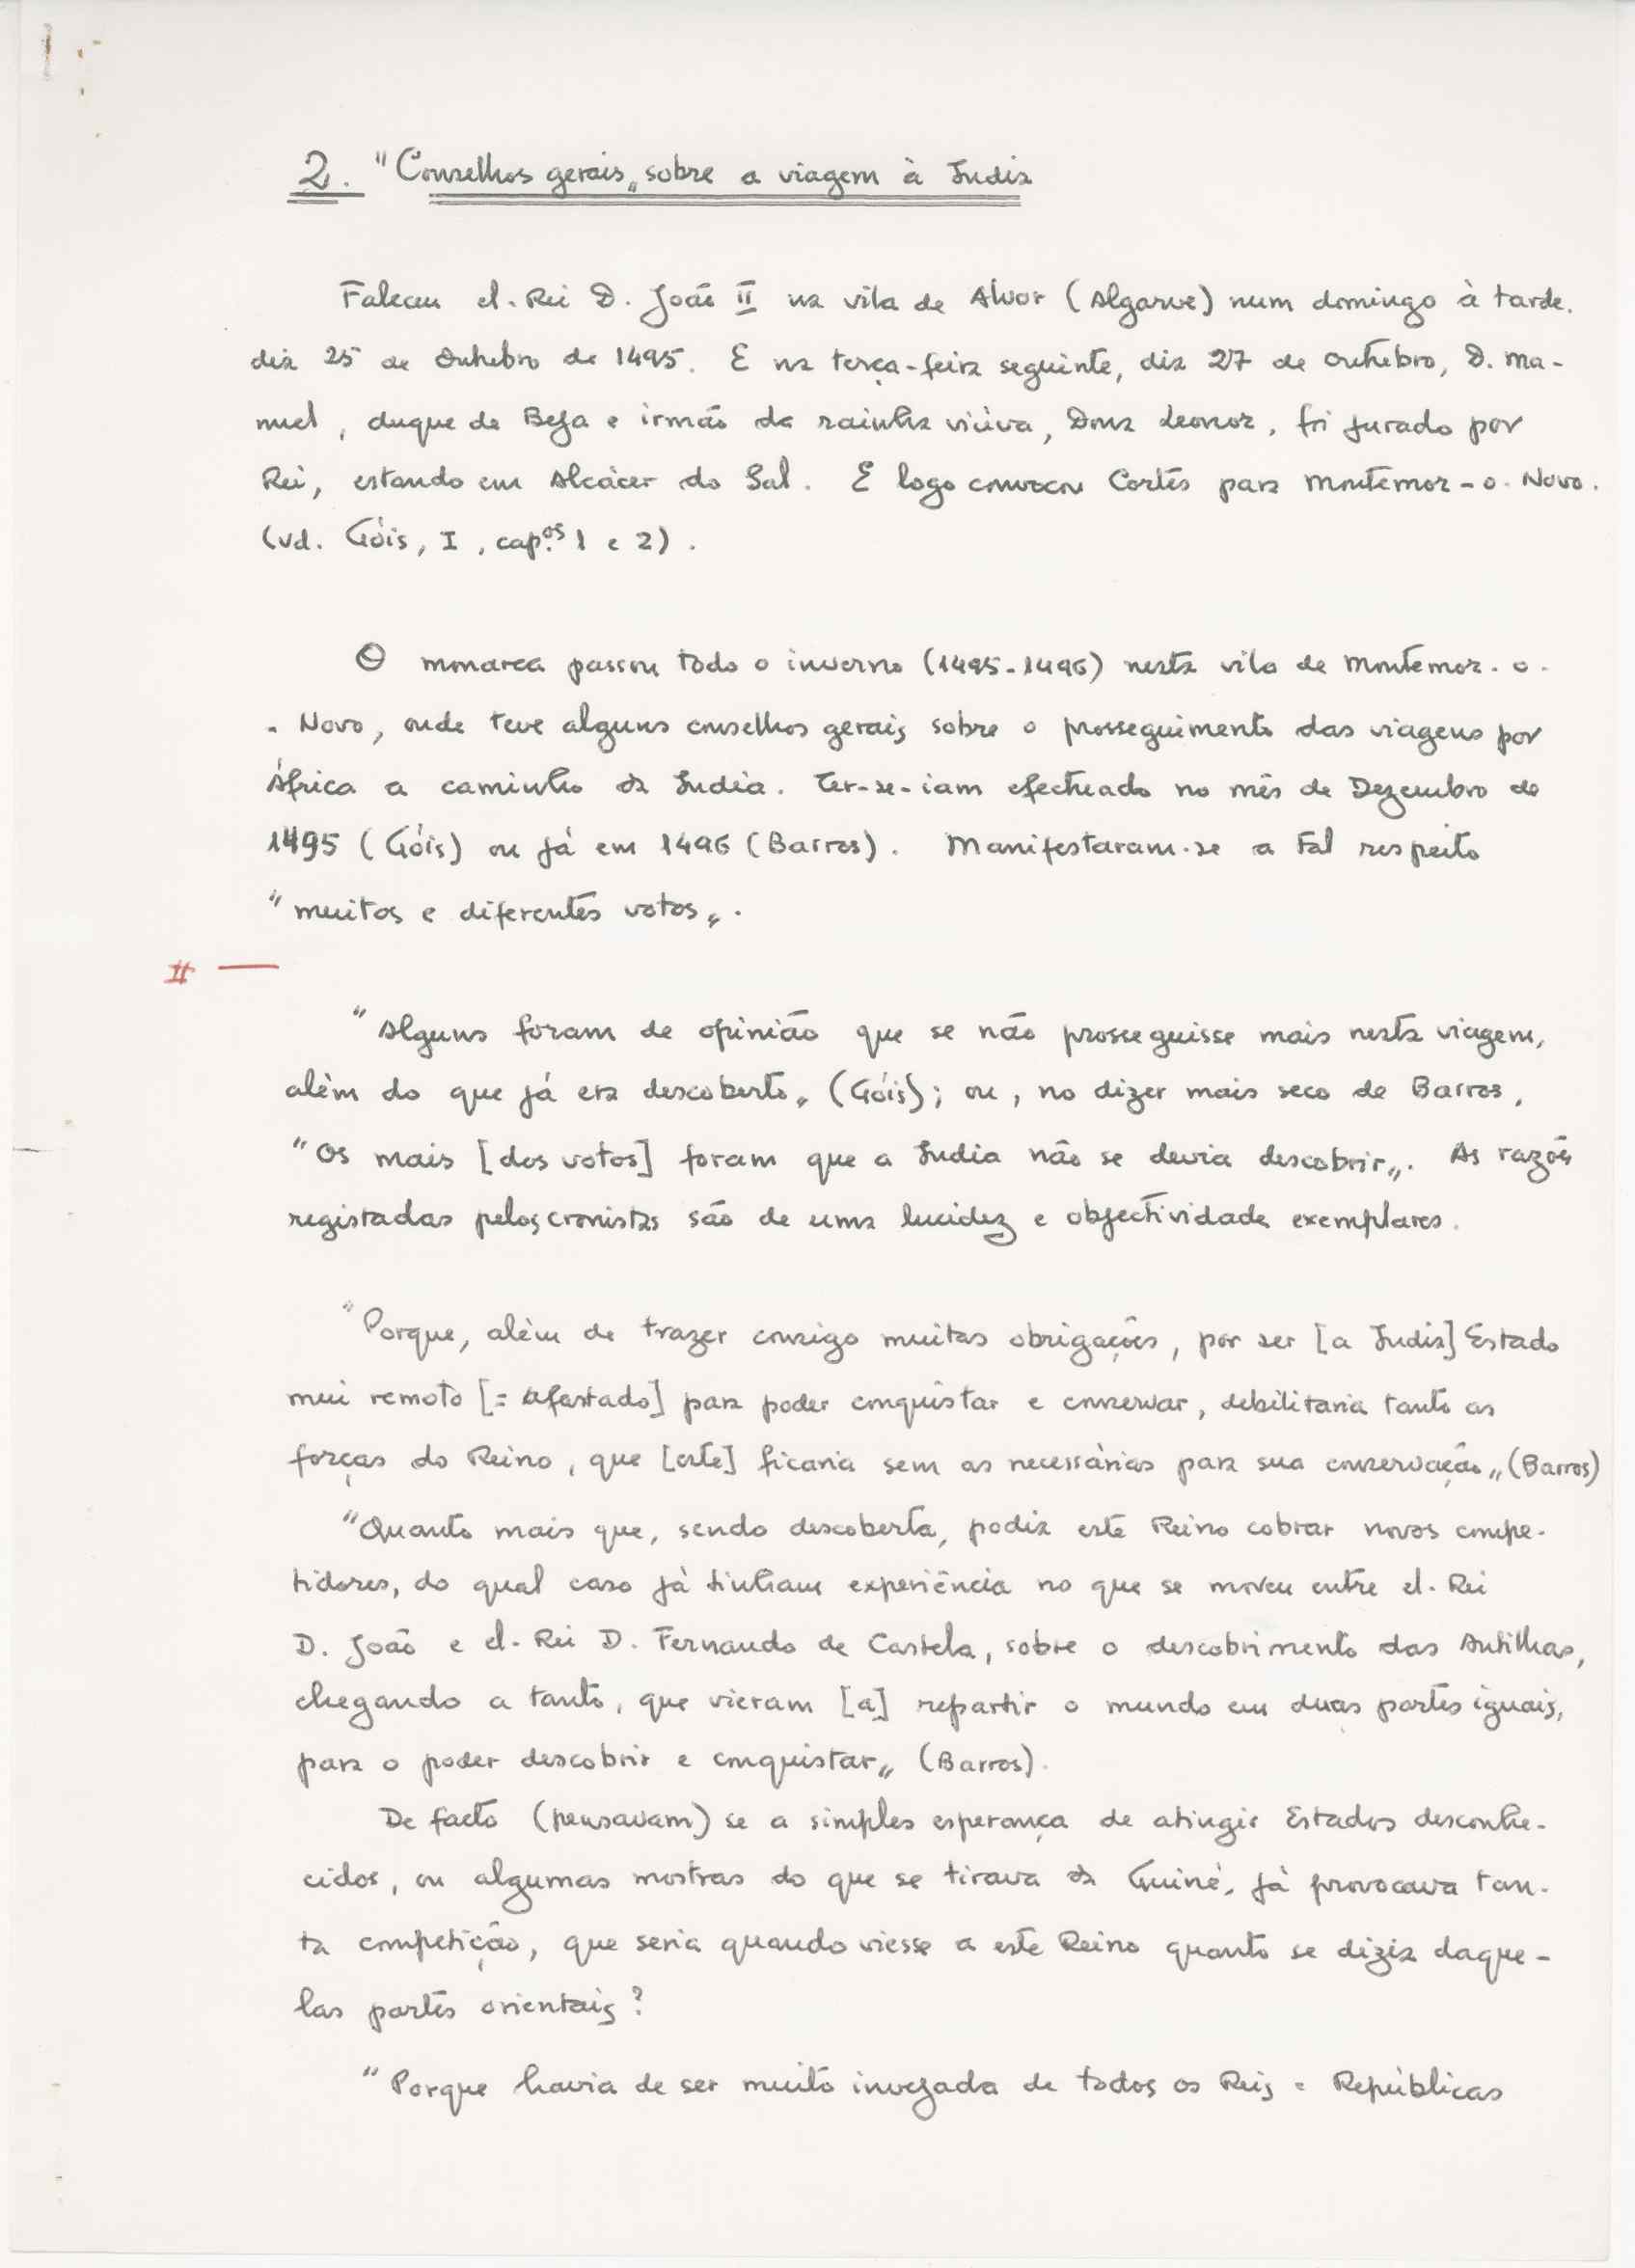 2. "Conselhos gerais„ sobre a viagem à Índia
Faleceu el-Rei D. João II na vila de Alvor (Algarve) num domingo à tarde,
dia 25 de Outubro de 1495. E na terça-feira seguinte, dia 27 de outubro, D. Ma-
nuel, duque de Beja e irmão da rainha viúva, Dona Leonor, foi jurado por
Rei, estando em Alcácer do Sal. E logo convocou Cortes para Montemor-o-Novo.
(vd. Góis, I, cap.os 1 e 2).
O monarca passou todo o inverno (1495-1496) nesta vila de Montemor-o-
-Novo, onde teve alguns conselhos gerais sobre o prosseguimento das viagens por
África a caminho da Índia. Ter-se-iam efectuado no mês de Dezembro de
1495 (Góis) ou já em 1496 (Barros). Manifestaram-se a tal respeito
"muitos e diferentes votos„.
# —
"Alguns foram de opinião que se não prosseguisse mais nesta viagem,
além do que já era descoberto„ (Góis); ou, no dizer mais seco de Barros,
"Os mais [dos votos] foram que a Índia não se devia descobrir„. As razões
registadas pelos cronistas são de uma lucidez e objectividade exemplares.
"Porque, além de trazer consigo muitas obrigações, por ser [a Índia] Estado
mui remoto [= afastado] para poder conquistar e conservar, debilitaria tanto as
forças do Reino, que [este] ficaria sem as necessárias para sua conservação„ (Barros)
"Quanto mais que, sendo descoberta, podia este Reino cobrar novos compe-
tidores, do qual caso já tinham experiência no que se moveu entre el-Rei
D. João e el-Rei D. Fernando de Castela, sobre o descobrimento das Antilhas,
chegando a tanto, que vieram [a] repartir o mundo em duas partes iguais,
para o poder descobrir e conquistar„ (Barros).
De facto (pensavam) se a simples esperança de atingir Estados desconhe-
cidos, ou algumas mostras do que se tirava da Guiné, já provocava tan-
ta competição, que seria quando viesse a este Reino quanto se dizia daque-
las partes orientais?
"Porque havia de ser muito invejada de todos os Reis e Repúblicas